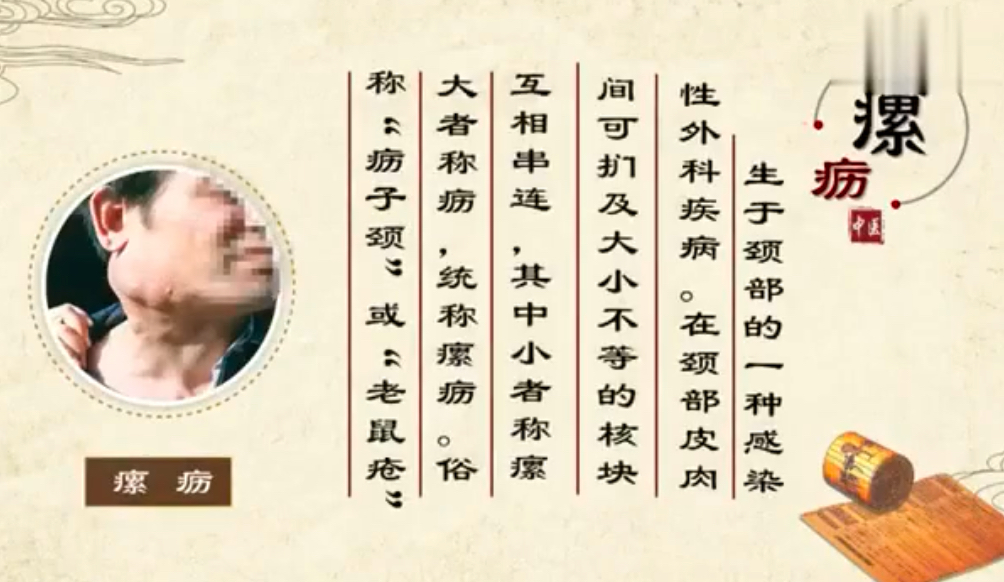 瘰
疬
中医
生于颈部的一种感染
性外科疾病。在颈部皮肉
间可扪及大小不等的核块
互相串连，其中小者称瘰
大者称疬，统称瘰疬。俗
称“疬子颈”或“老鼠疮”
瘰疬